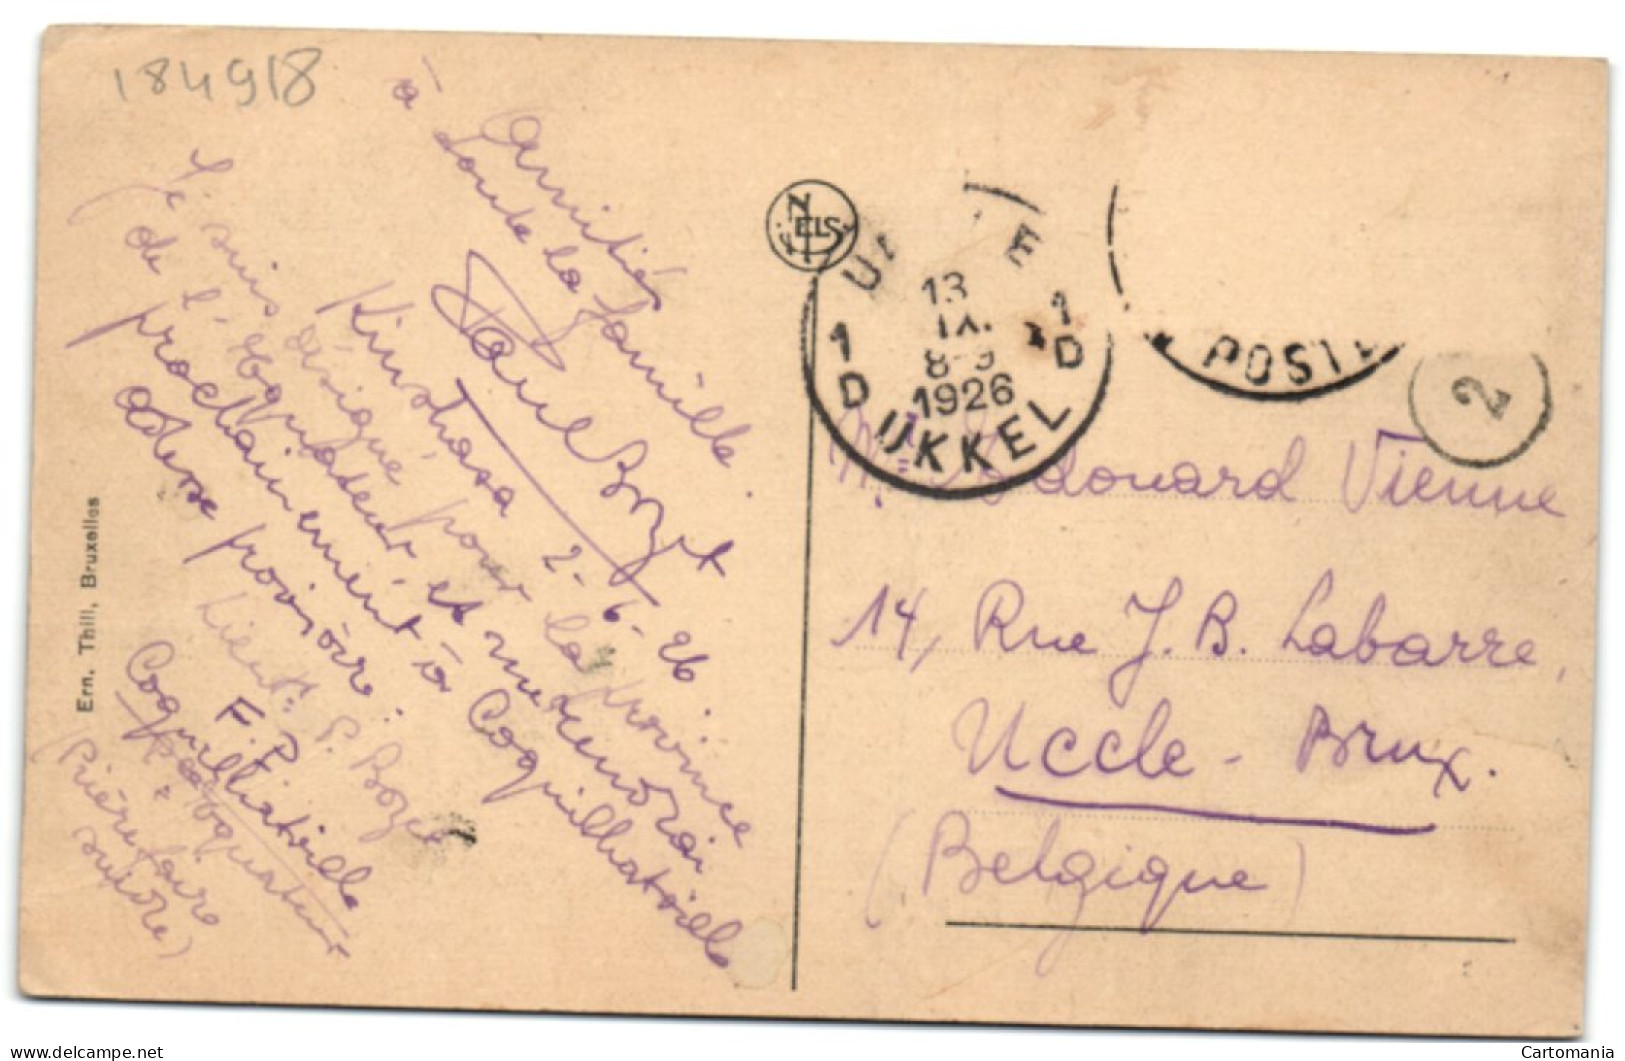 184918
Amitiés
à toute la famille.
Paul Bozet
Kinshasa 2-6-26.
Je suis désigné pour la province
de l'Equateur et me rendrai
prochainement à Coquilhatville
adresse provisoire:
Lieut. P. Bozet
F.P.
Coquilhatville
Equateur
(Prière faire
suivre)
Ern. Thill, Bruxelles
NELS
U E
13
IX.
8-9
1926
1 D
1 D
UKKEL
POSTE
2
Mr. Edouard Vienne
14, Rue J. B. Labarre,
Uccle - Brux.
(Belgique)
delcampe.net
Cartomania